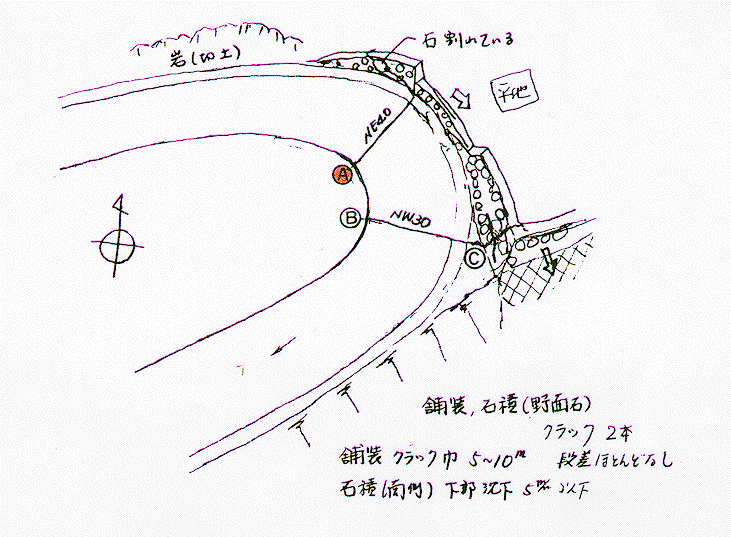 石割れている
岩(切土)
平地
NE40
A
B
NW30
C
舗装,石積(野面石)
クラック 2本
舗装 クラック巾 5~10㎜ 段差ほとんどなし
石積(南側) 下部沈下 5㎜以下